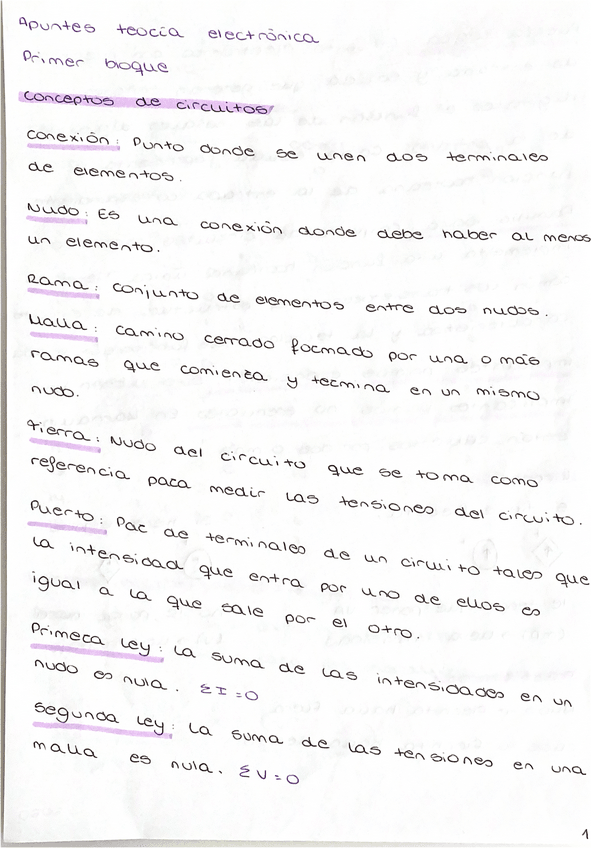 Apuntes teoría electrónica
Primer bloque
Conceptos de circuitos
Conexión: Punto donde se unen dos terminales
de elementos.
Nudo: Es una conexión donde debe haber al menos
un elemento.
Rama: conjunto de elementos entre dos nudos.
Malla: camino cerrado formado por una o más
ramas que comienza y termina en un mismo
nudo.
Tierra: Nudo del circuito que se toma como
referencia para medir las tensiones del circuito.
Puerto: Par de terminales de un circuito tales que
la intensidad que entra por uno de ellos es
igual a la que sale por el otro.
Primera ley: la suma de las intensidades en un
nudo es nula. ΣI=0
Segunda ley: la suma de las tensiones en una
malla es nula. ΣV=0
1